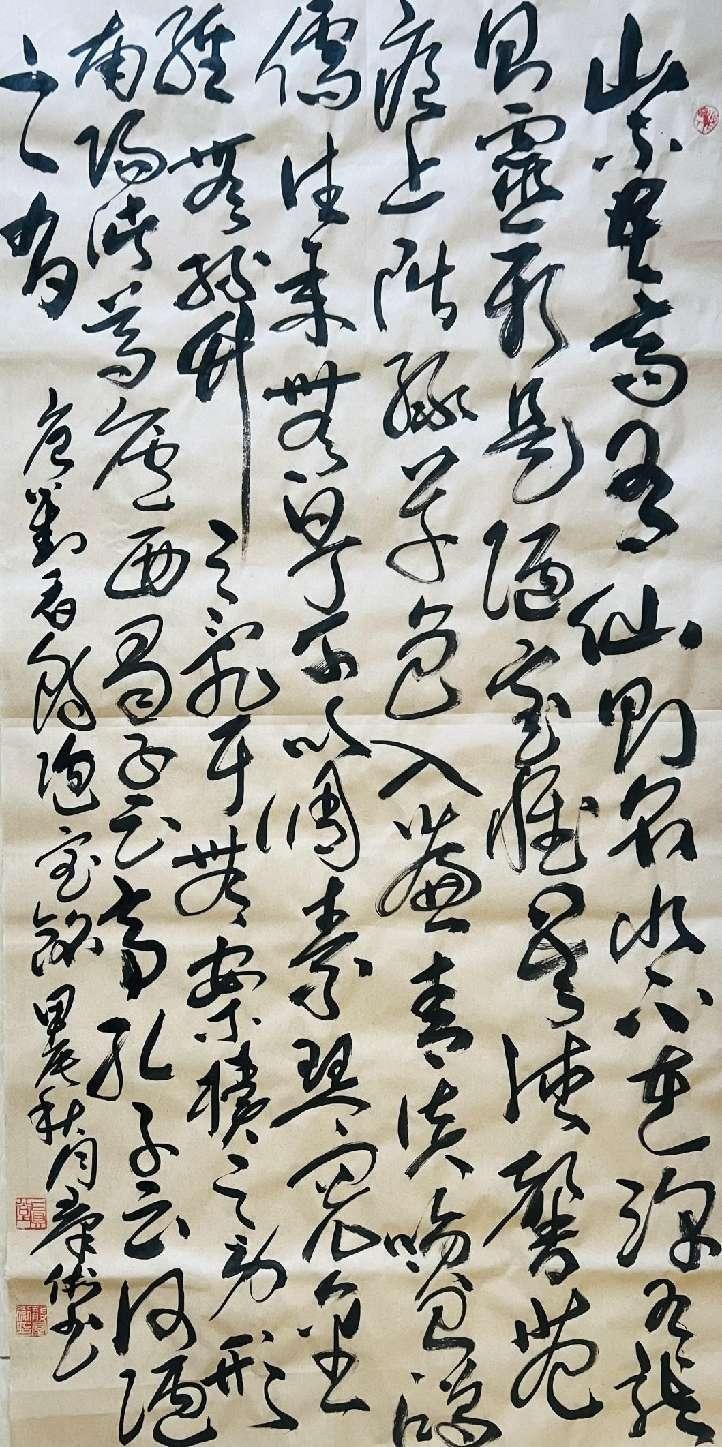 山不在高有仙則名水不在深有龍
則靈斯是陋室惟吾德馨苔
痕上階緑草色入簾青談笑有鴻
儒往来無白丁可以調素琴閱金
經無絲竹之亂耳無案牘之勞形
南陽諸葛廬西蜀子云亭孔子云何陋
之有
唐劉禹錫陋室銘甲辰秋月書